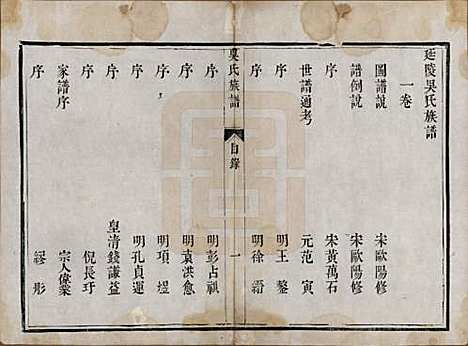 延陵吳氏族譜
一卷
圖譜說 宋歐陽修
譜例說 宋歐陽修
序 宋黃萬石
世譜通考 元范寅
序 明王鏊
序 明徐縉
吳氏族譜 目錄 一
序 明彭占祺
序 明袁洪愈
序 明項煜
序 明孔貞運
序 皇清錢謙益
序 倪長玗
家譜序 宗人偉業
序 繆彤